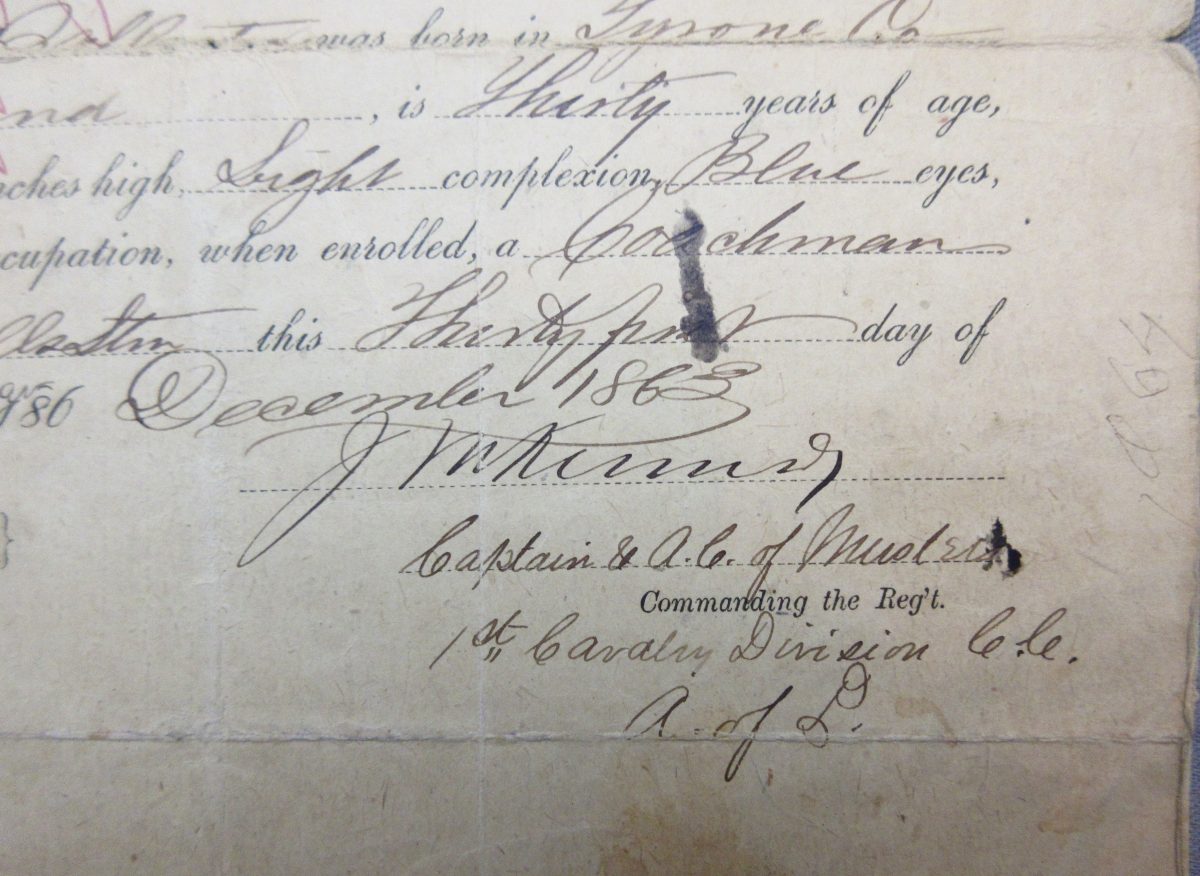 was born in Tyrone Co
nd , is Thirty years of age,
nches high, Light complexion, Blue eyes,
ccupation, when enrolled, a Coachman
this Thirty first day of
186 December 1863
J McKenndy
Captain & A.C. of Musters
Commanding the Reg't.
1st Cavalry Division C.C.
A. of P.